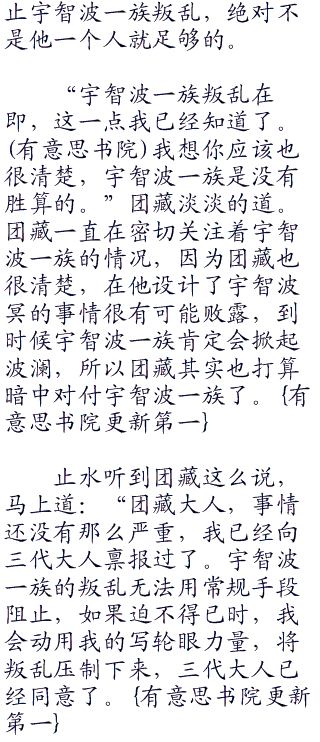 止宇智波一族叛乱，绝对不
是他一个人就足够的。
“宇智波一族叛乱在
即，这一点我已经知道了。
(有意思书院)我想你应该也
很清楚，宇智波一族是没有
胜算的。”团藏淡淡的道。
团藏一直在密切关注着宇智
波一族的情况，因为团藏也
很清楚，在他设计了宇智波
冥的事情很有可能败露，到
时候宇智波一族肯定会掀起
波澜，所以团藏其实也打算
暗中对付宇智波一族了。{有
意思书院更新第一}
止水听到团藏这么说，
马上道：“团藏大人，事情
还没有那么严重，我已经向
三代大人禀报过了。宇智波
一族的叛乱无法用常规手段
阻止，如果迫不得已时，我
会动用我的写轮眼力量，将
叛乱压制下来，三代大人已
经同意了。{有意思书院更新
第一}